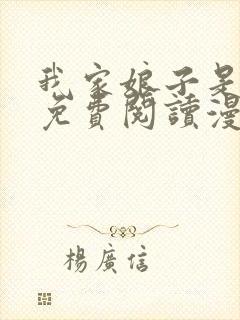 我家娘子是
免費閱讀漫
楊廣信